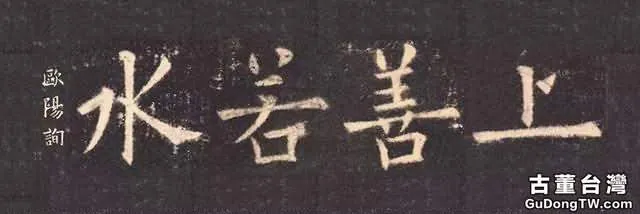 上善若水
歐陽詢
古董台灣
GuDongTW.com